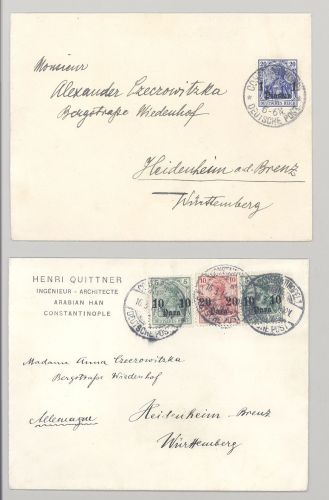 Monsieur
Alexander Czecrowitzka
Bergstraße Wiedenhof
Heidenheim a.d. Brenz
Württemberg
20 20
1 1
Piaster
DEUTSCHES REICH
DEUTSCHE POST
HENRI QUITTNER
INGÉNIEUR - ARCHITECTE
ARABIAN HAN
CONSTANTINOPLE
10 10
Para
20 20
Para
10 10
Para
Madame Anna Czecrowitzka
Bergstraße Wiedenhof
Allemagne
Heidenheim - Brenz
Württemberg